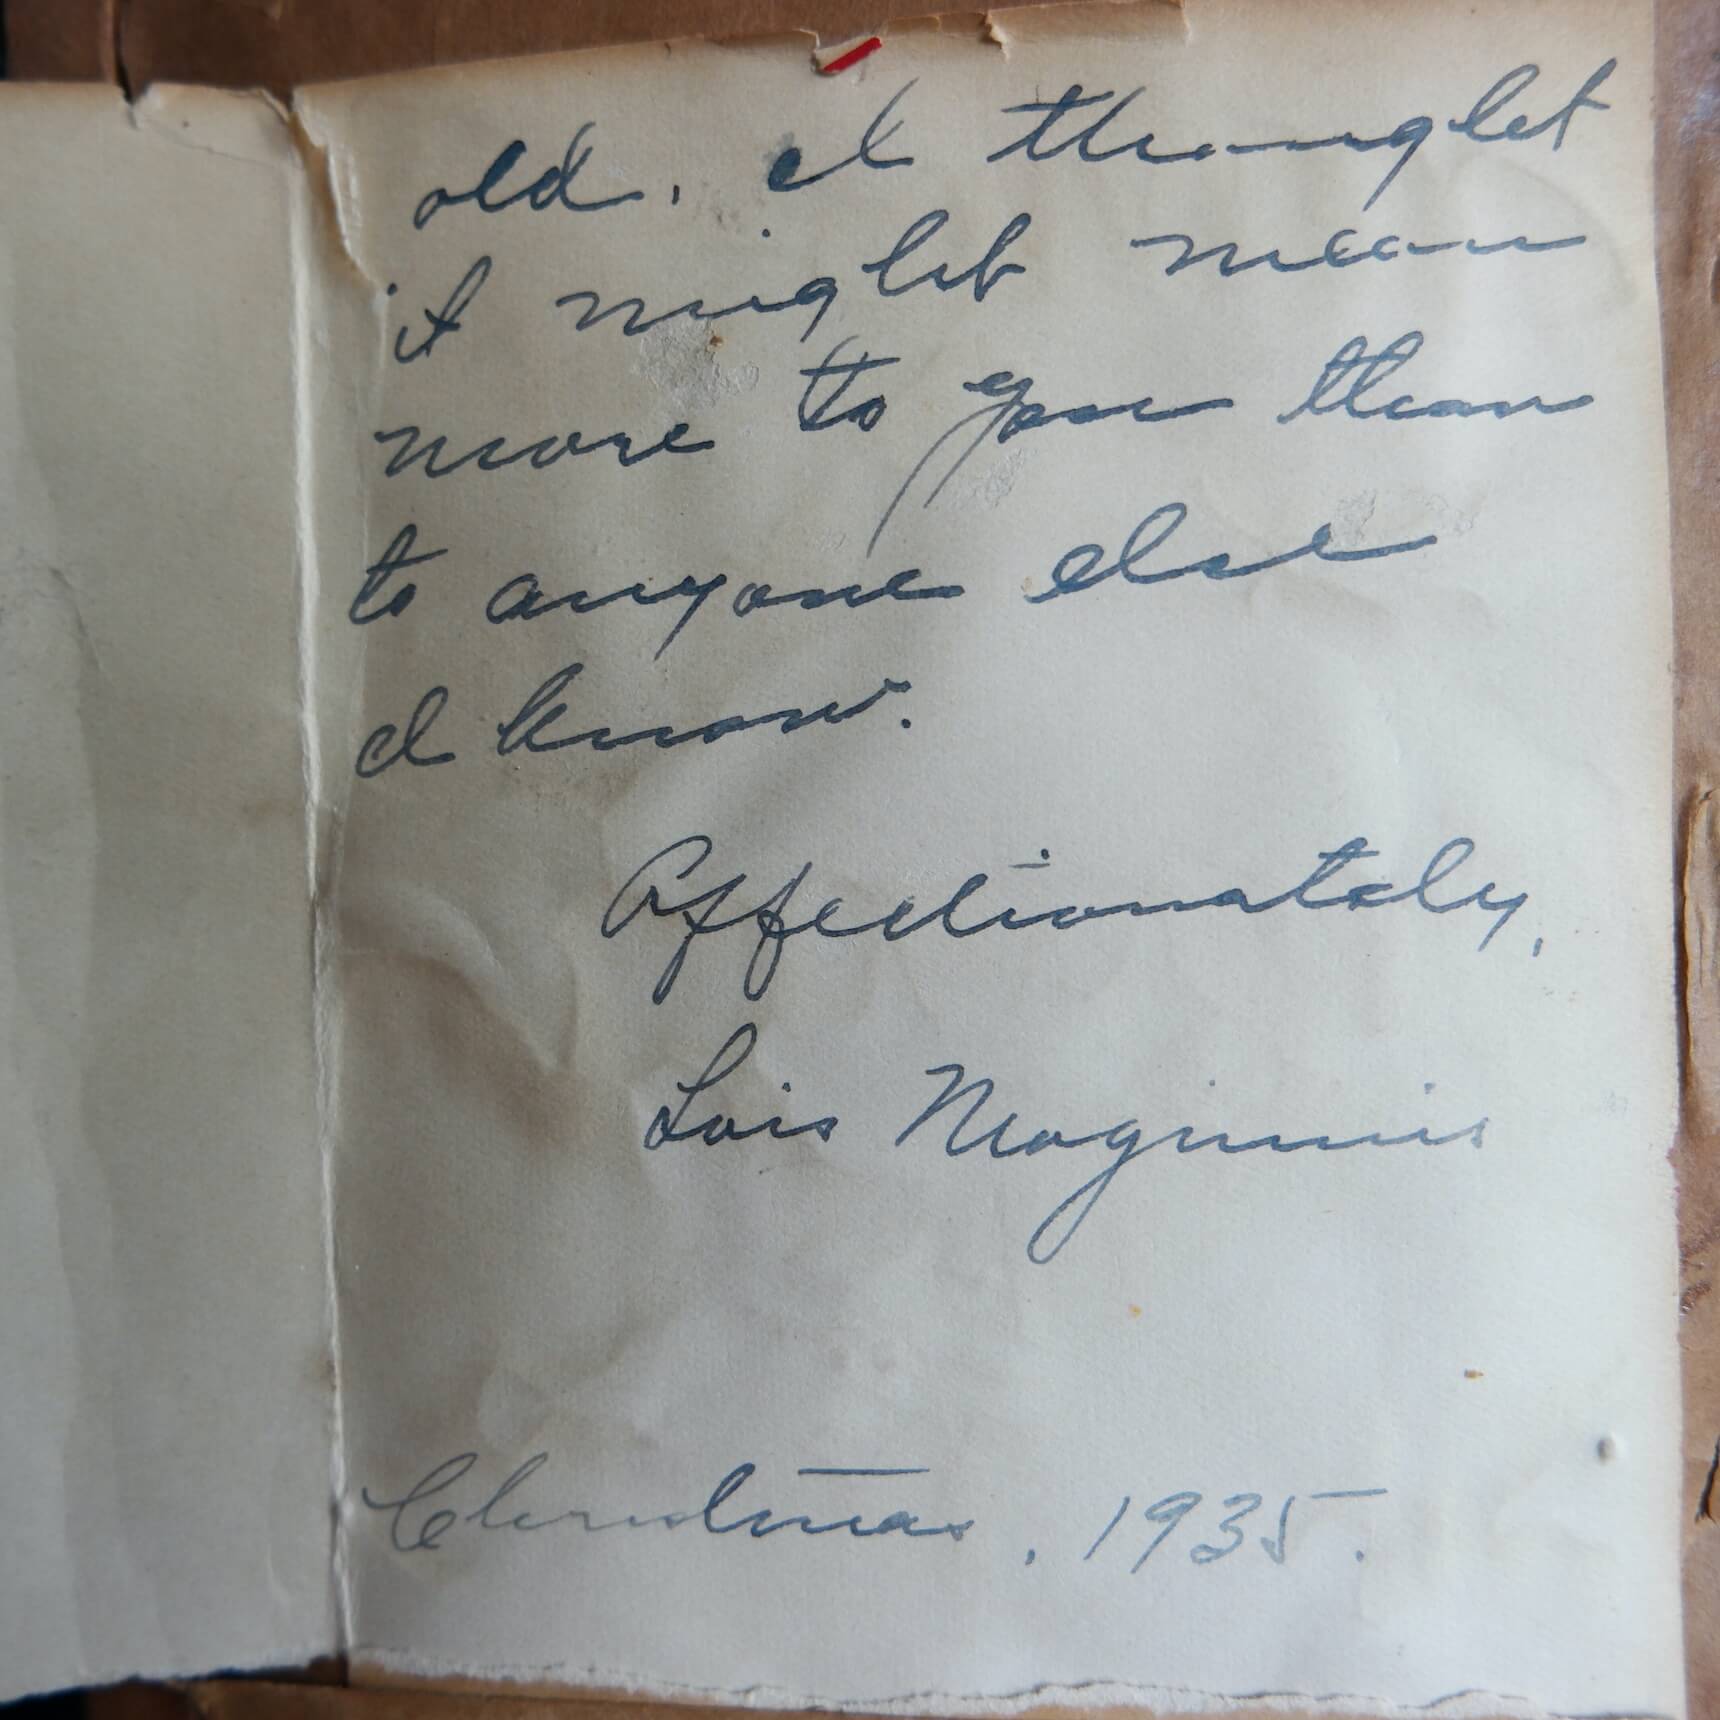 old. I thought
it might mean
more to you than
to anyone else
I know.
Affectionately,
Lois Maginnis
Christmas, 1935.